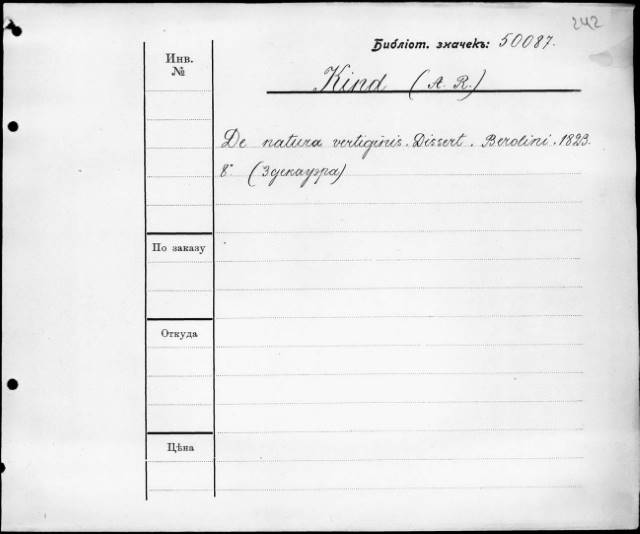 242
Библіот. значекъ: 50087.
Инв.
№
Kind (A. R.)
De natura vertiginis. Dissert. Berolini. 1823.
8° (Здекауэра)
По заказу
Откуда
Цѣна